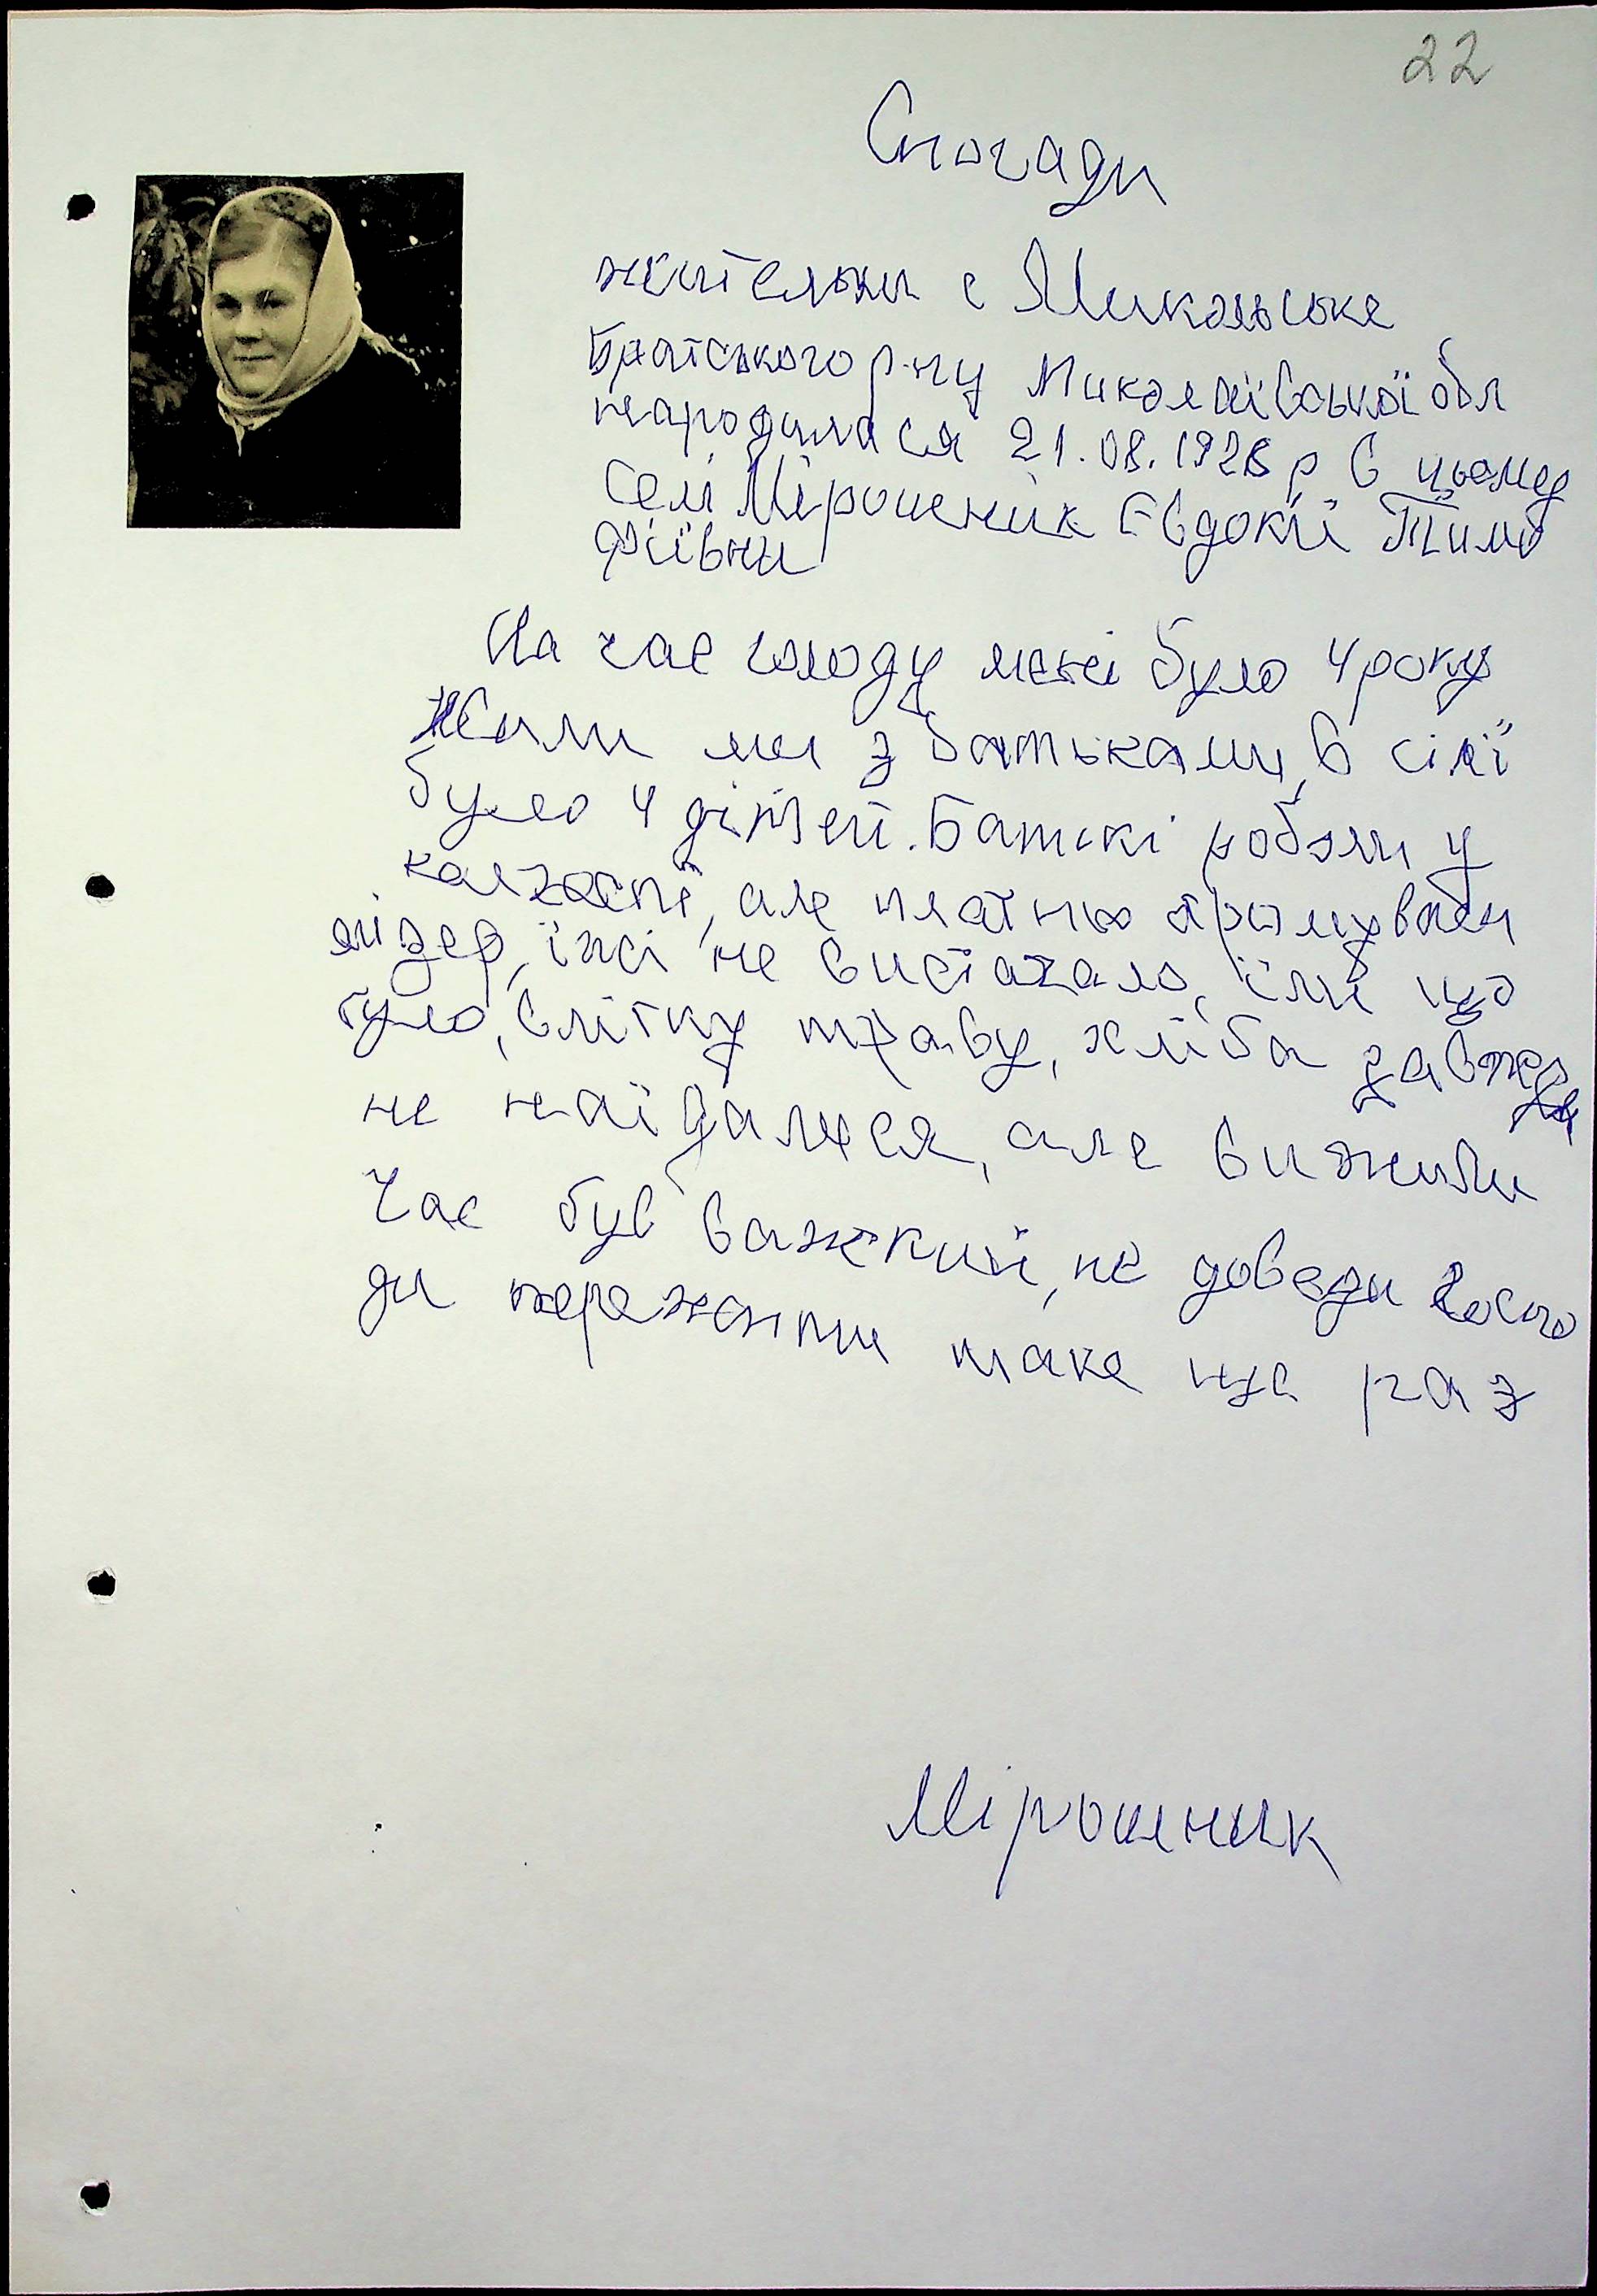 22
Спогади
жительки с Микольське
Братського р-ну Миколаївської обл
народилася 21.08.1928 р в цьому
селі Мірошеник Евдокії Тимо
фіївни
На час голоду мені було 4 року
Жили ми з батьками, в сімї
було 4 дітей. Батькі робили у
колхоспі, але платню отримували
мізер, їжі не вистачало, їли що
було, влітку траву, хліба завжди
не наїдалися, але вижили
Час був важкий, не доведи Госпо
ди пережити таке ще раз
Мірошник